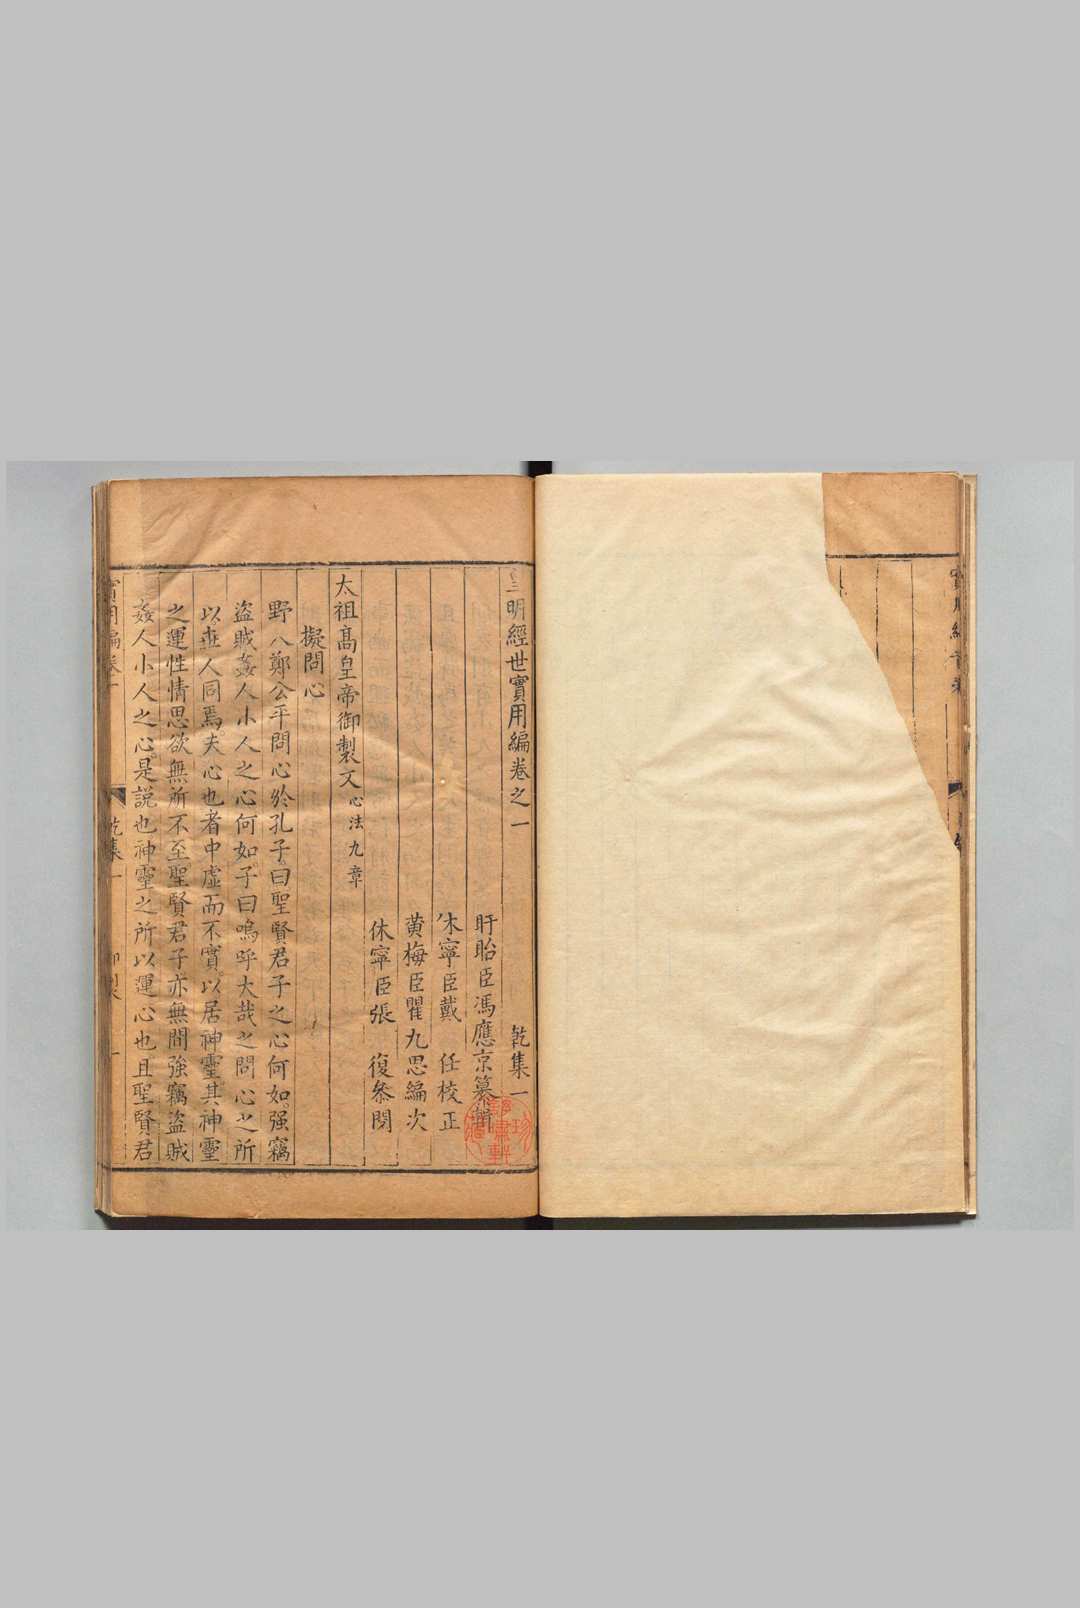 皇明經世實用編卷之一　乾集一
盱眙臣馮應京纂輯
休寧臣戴　任校正
黃梅臣瞿九思編次
休寧臣張　復叅閱
太祖高皇帝御製文心法九章
擬問心
野人鄭公平問心於孔子子曰聖賢君子之心何如强竊
盜賊姦人小人之心何如子曰嗚呼大哉之問心之所
以世人同焉夫心也者中虛而不實以居神靈其神靈
之運性情思欲無所不至聖賢君子亦無間強竊盜賊
姦人小人之心是說也神靈之所以運心也且聖賢君
實用編卷一　乾集一　御製　一